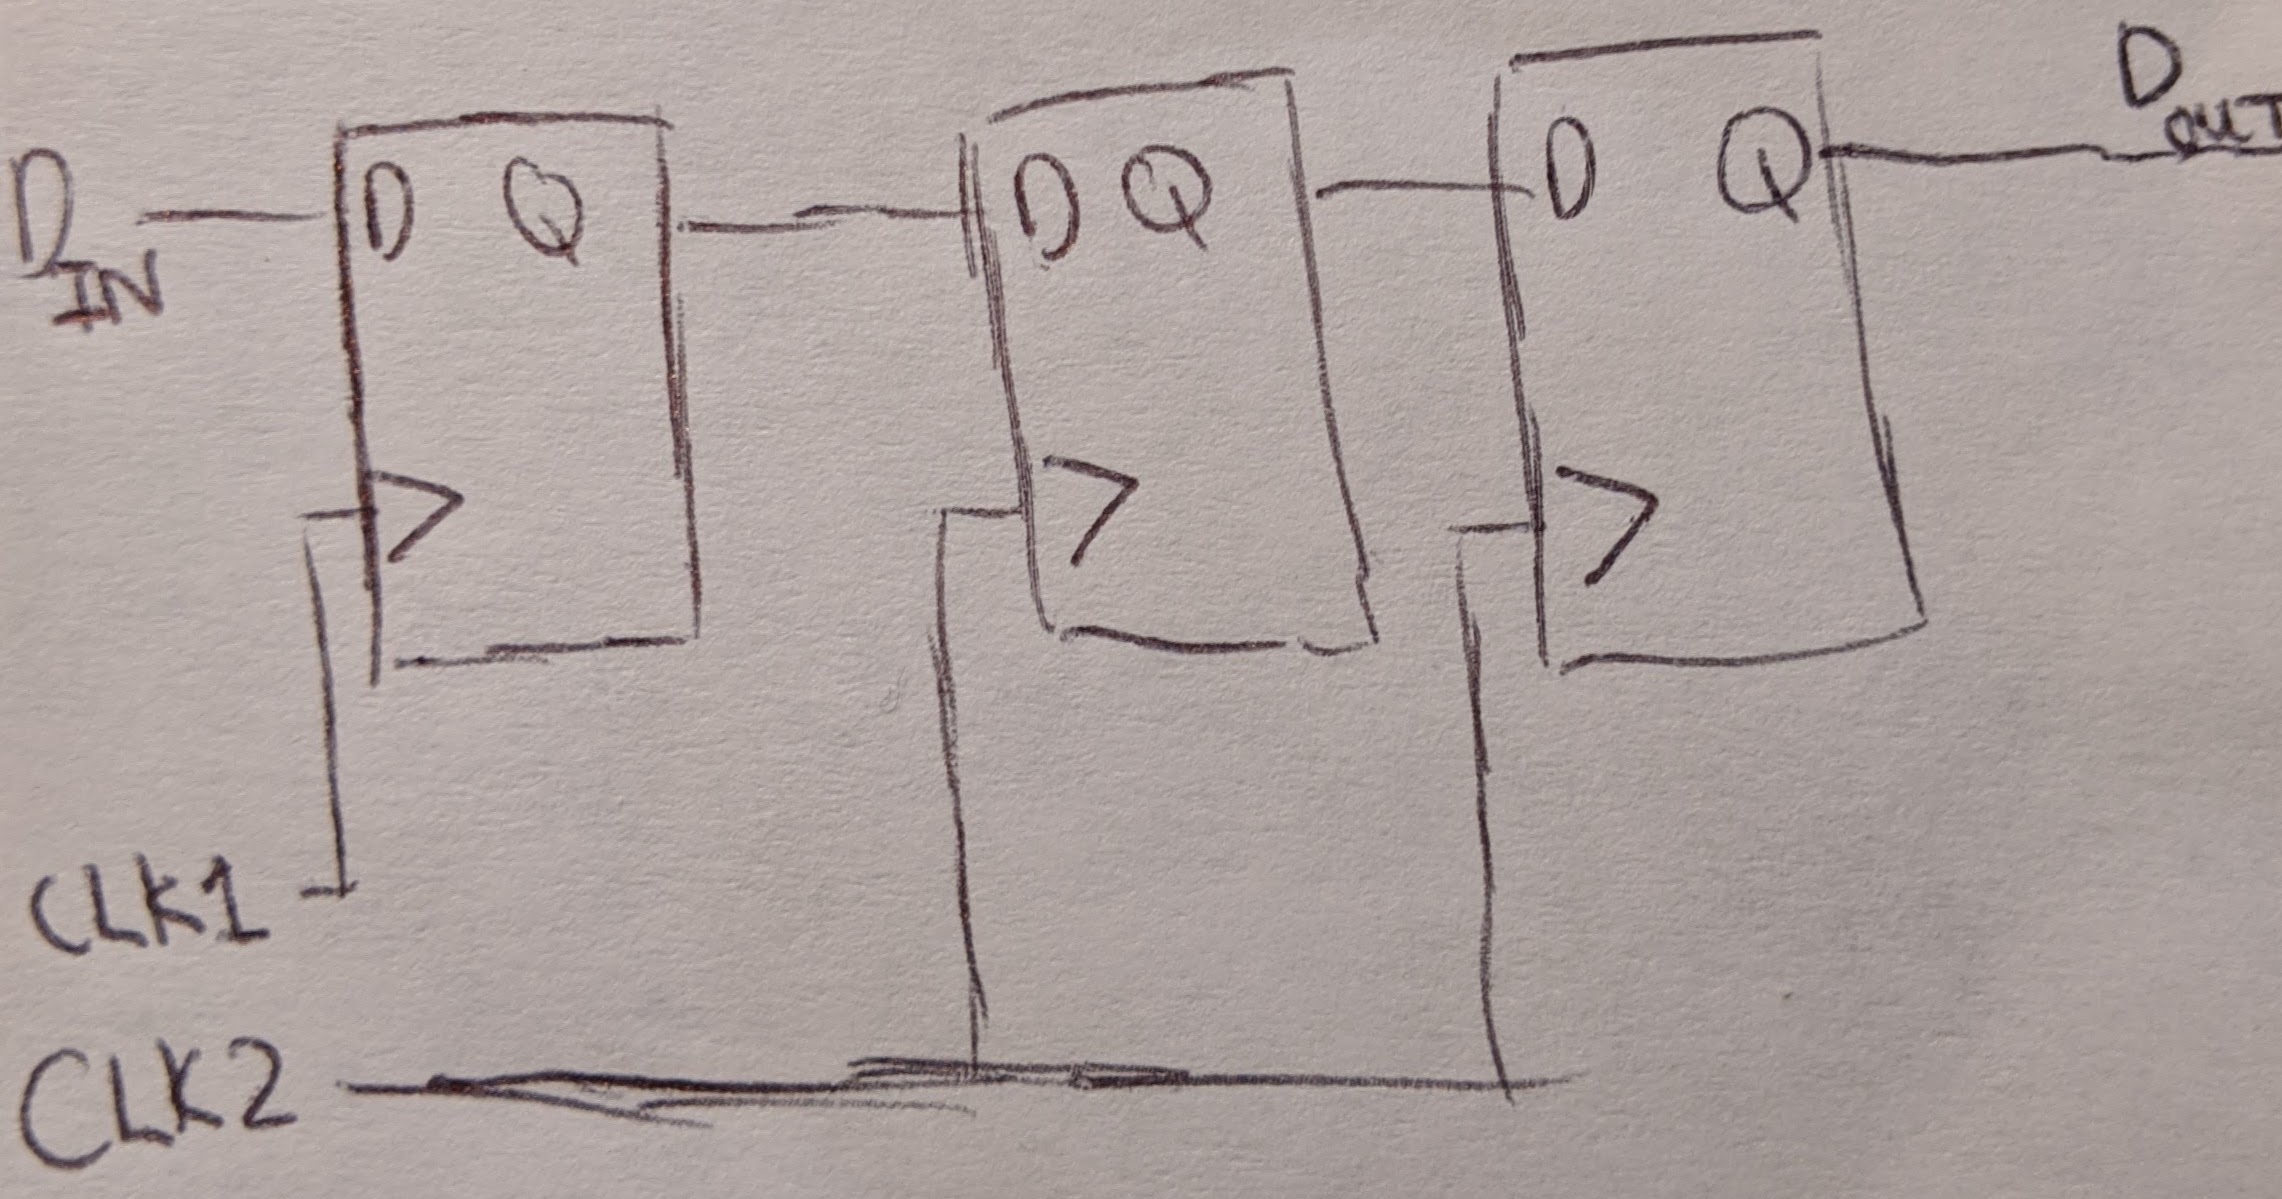 D_IN
D Q
D Q
D Q
D_OUT
CLK1
CLK2